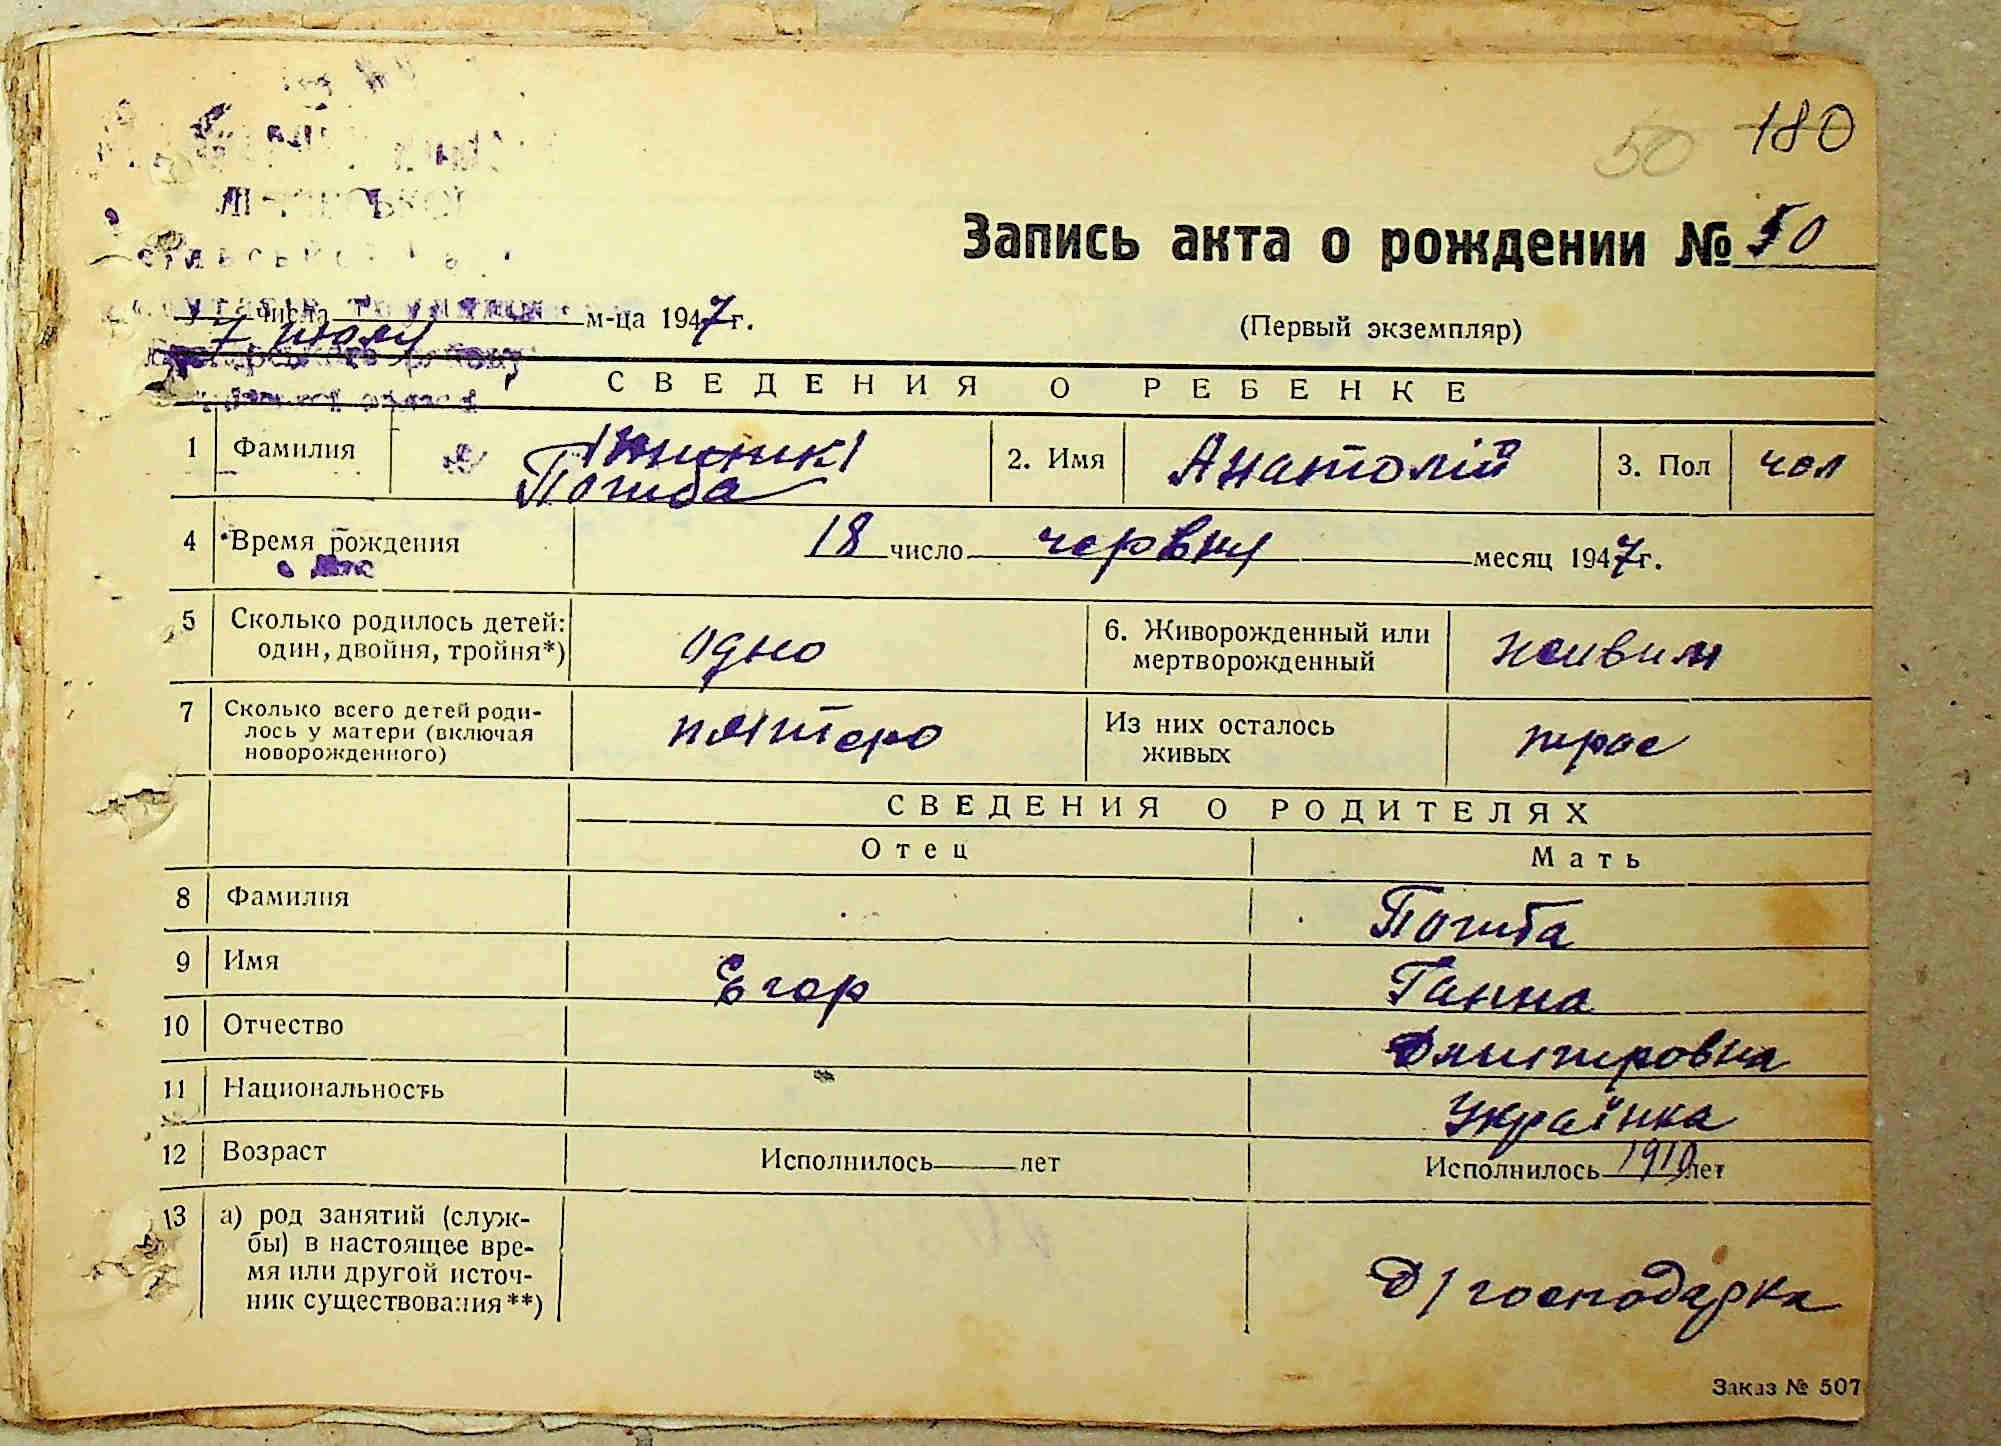 50 180
Запись акта о рождении № 50
7 июля числа м-ца 1947 г.
(Первый экземпляр)
СВЕДЕНИЯ О РЕБЕНКЕ
1 Фамилия Погиба 2. Имя Анатолій 3. Пол чол
4 Время рождения 18 число червня месяц 1947 г.
5 Сколько родилось детей: один, двойня, тройня*) одно 6. Живорожденный или мертворожденный живим
7 Сколько всего детей роди-
лось у матери (включая
новорожденного) пятеро Из них осталось живых трое
СВЕДЕНИЯ О РОДИТЕЛЯХ
Отец Мать
8 Фамилия Погиба
9 Имя Егор Ганна
10 Отчество Дмитровна
11 Национальность Українка
12 Возраст Исполнилось лет Исполнилось 1910 лет
13 а) род занятий (служ-
бы) в настоящее вре-
мя или другой источ-
ник существования**) Д/господарка
Заказ № 507